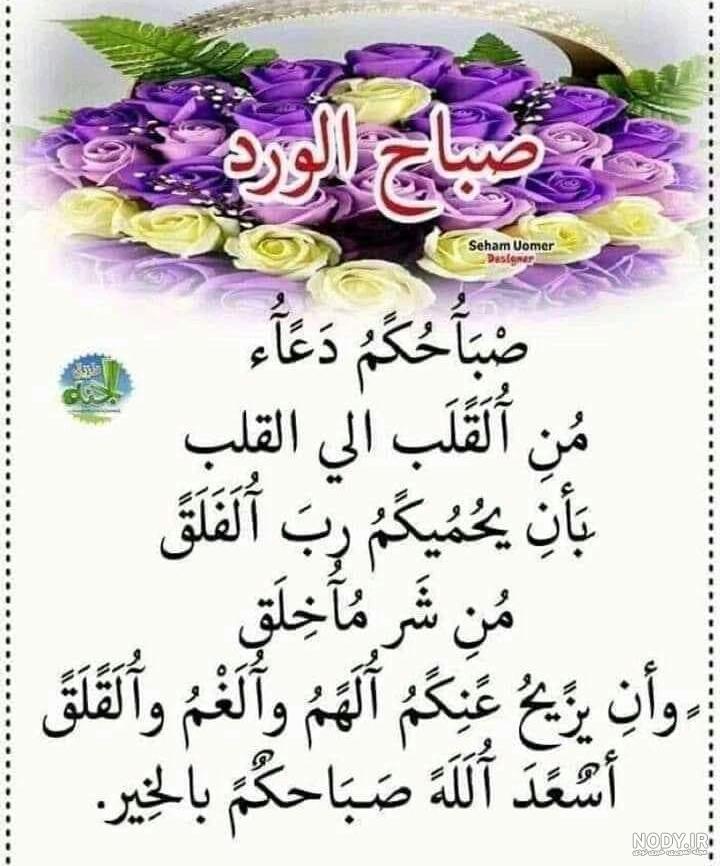 صباح الورد
Seham Uomer
Designer
صْبَآُحُكًمُ دَعًآُء
مُنِ آُلَقًلَب الي القلب
بَأنِ يحُمُيكًمُ ربَ آُلَفَلَقً
مُنِ شَر مُآُخِلَق
وأنِ يزًيحُ عًنِكًمُ آُلَهًمُ وآُلَغْمُ وآُلَقًلَقً
أسٌعًدَ آُلَلَهً صَبَاحكٌمً بالخِير.
NODY.IR